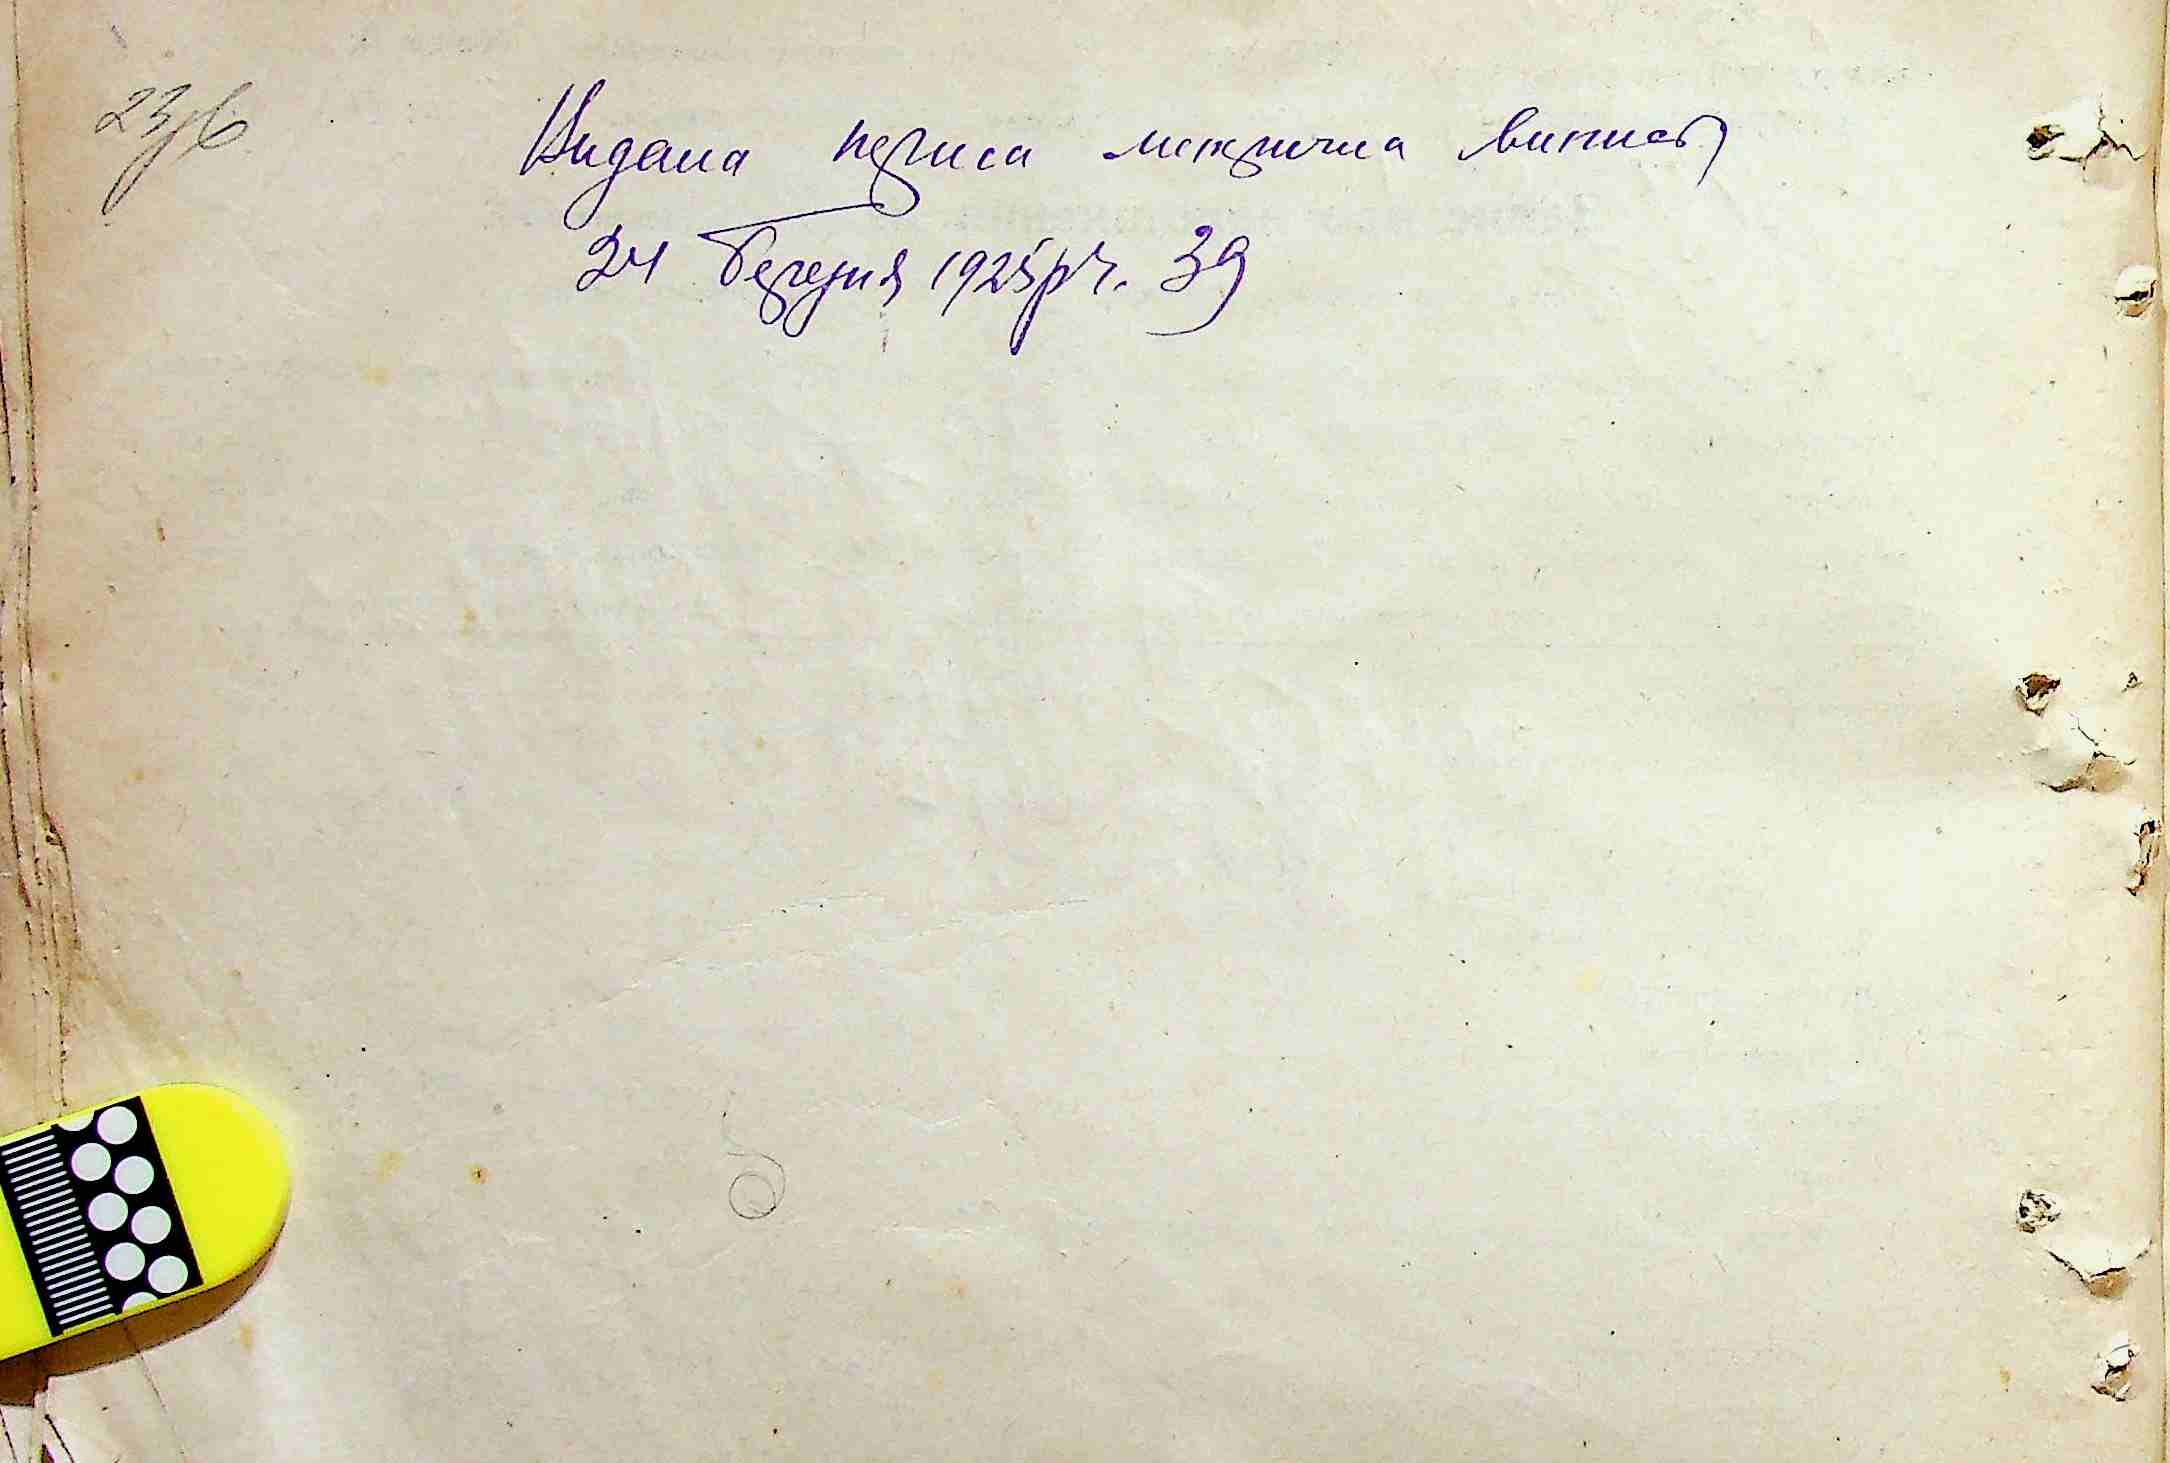 23зв
Видана перша метрична випись
24 березня 1925 р ч. 39